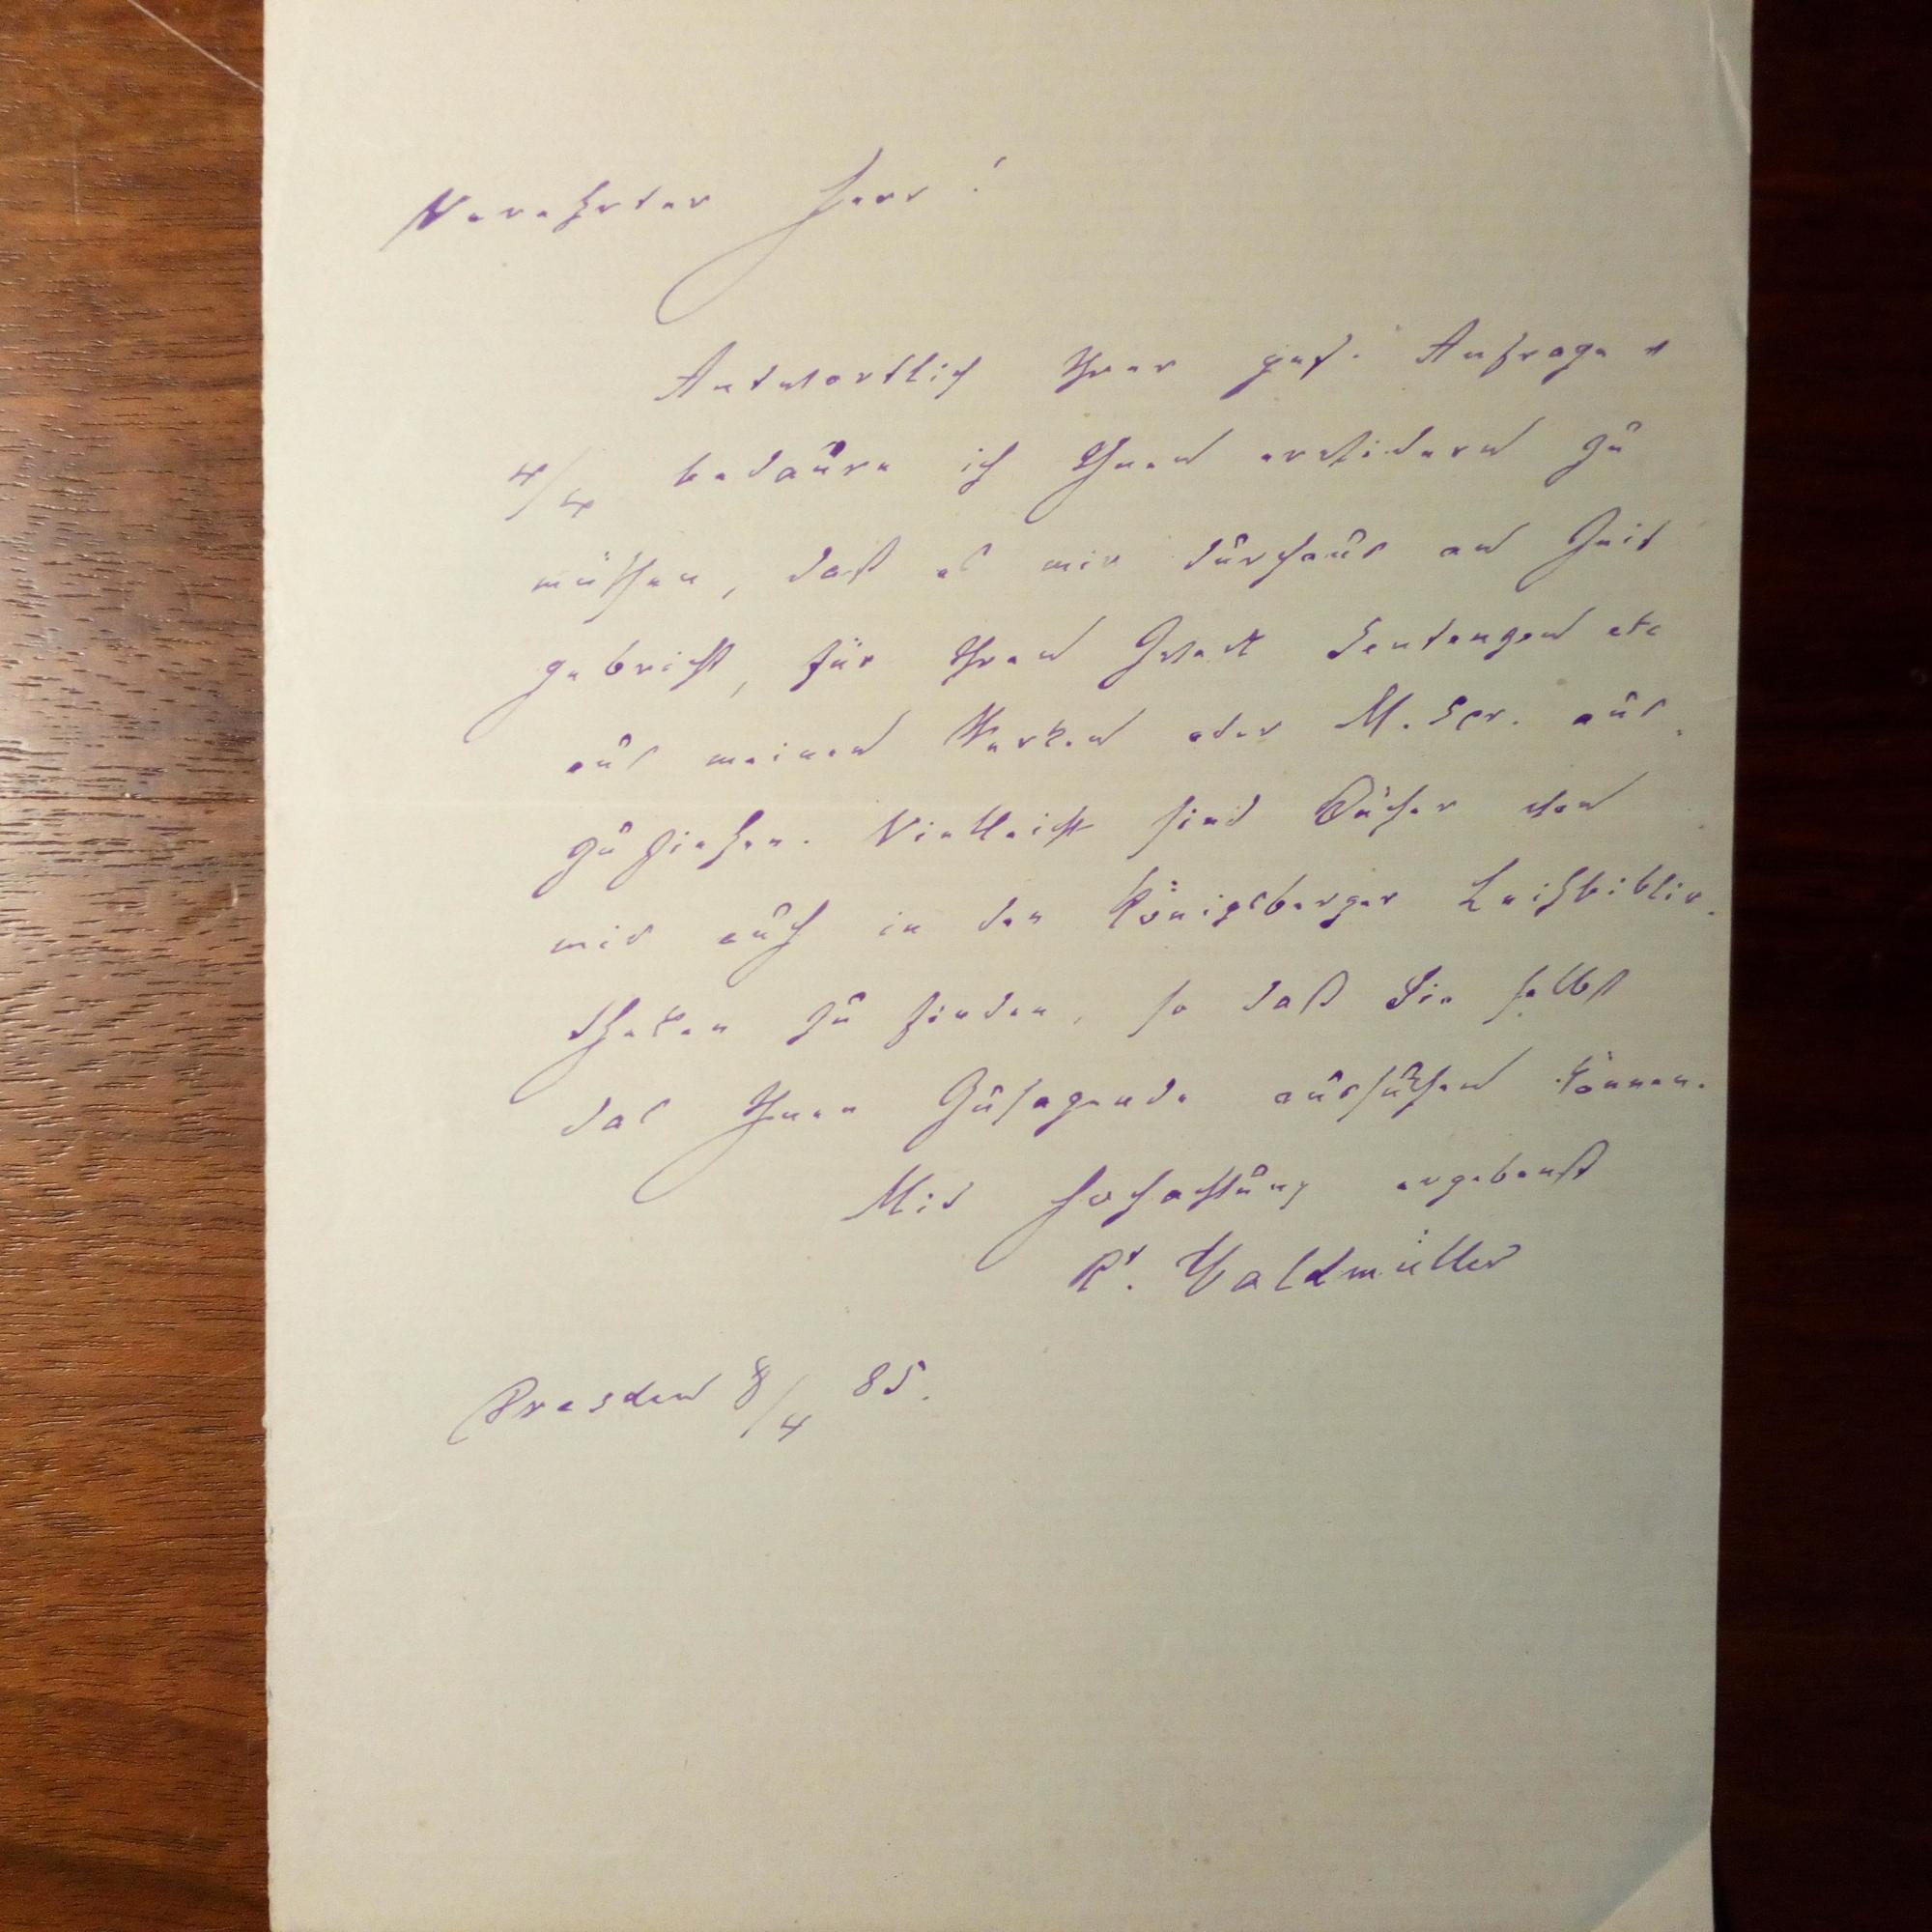 Verehrter Herr!
Antwortlich Ihrer gef. Anfrage v
4/4 bedaure ich Ihnen erwidern zu
müssen, daß es mir durchaus an Zeit
gebricht, für Ihren Zweck Sentenzen etc
aus meinen Werken oder M.Scr. aus-
zuziehen. Vielleicht sind Bücher von
mir auch in den Königsberger Leihbiblio-
theken zu finden, so daß Sie selbst
das Ihnen Zusagende aussuchen können.
Mit Hochachtung ergebenst
Rt. Waldmüller
Dresden 8/4 85.